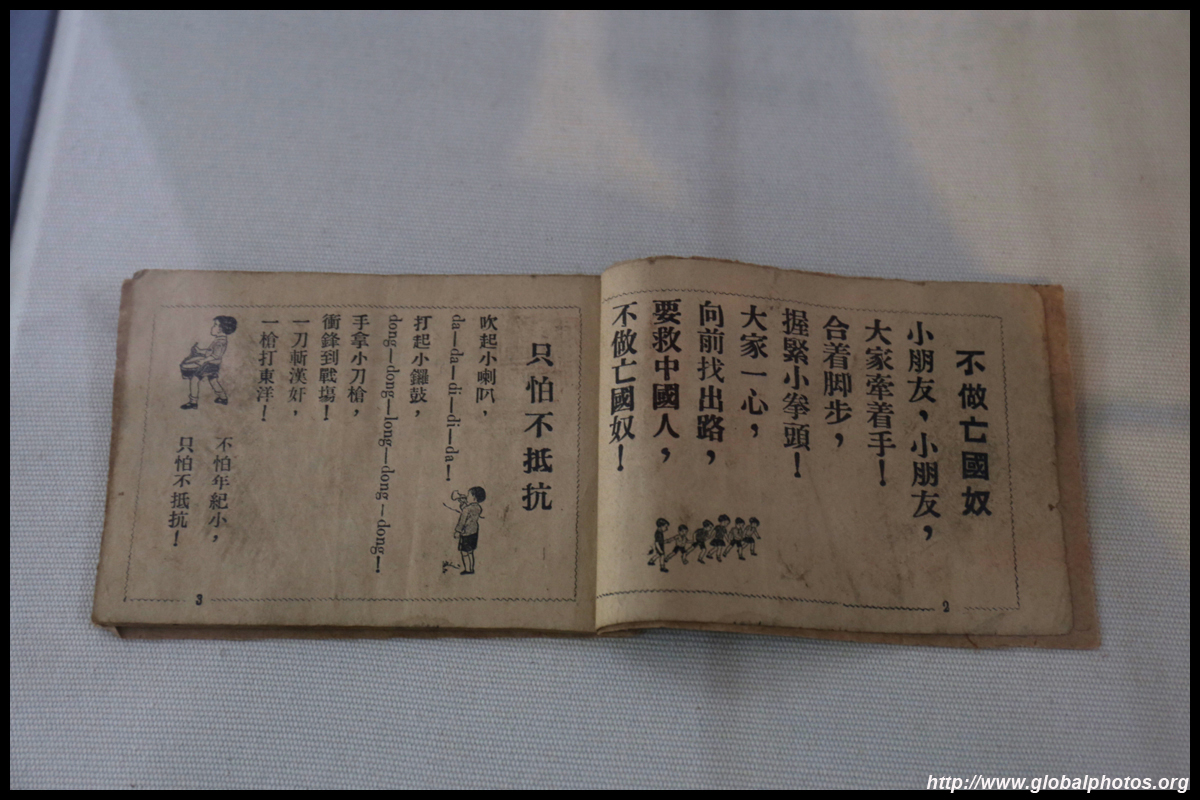 不做亡國奴
小朋友，小朋友，
大家牽着手！
合着脚步，
握緊小拳頭！
大家一心，
向前找出路，
要救中國人，
不做亡國奴！
2
只怕不抵抗
吹起小喇叭，
da—da—di—di—da！
打起小鑼鼓，
dong—dong—long—dong—dong！
手拿小刀槍，
衝鋒到戰場！
一刀斬漢奸，
一槍打東洋！
不怕年紀小，
只怕不抵抗！
3
http://www.globalphotos.org